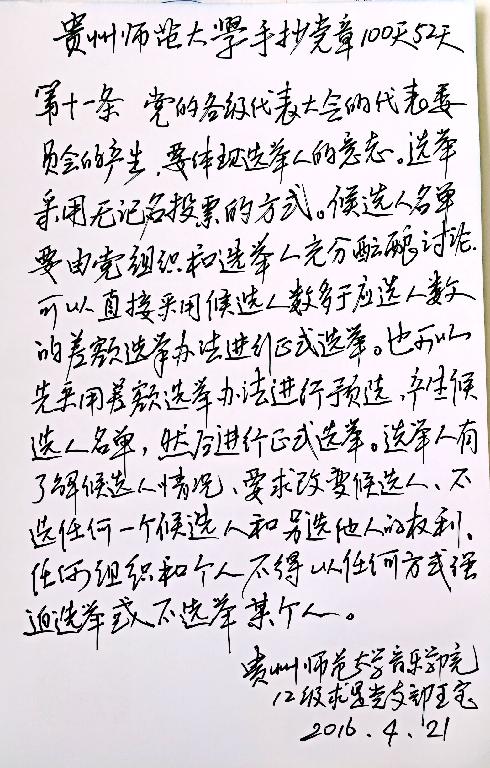 贵州师范大學手抄党章100天52天
第十一条 党的各级代表大会的代表委
员会的产生,要体现选举人的意志。选举
采用无记名投票的方式。候选人名单
要由党组织和选举人充分酝酿讨论.
可以直接采用候选人数多于应选人数
的差额选举办法进行正式选举。也可以
先采用差额选举办法进行预选,产生候
选人名单,然后进行正式选举。选举人有
了解候选人情况、要求改变候选人、不
选任何一个候选人和另选他人的权利.
任何组织和个人不得以任何方式强
迫选举或人不选举某个人。
贵州师范大学音乐学院
12级求是党支部王宝
2016.4.21